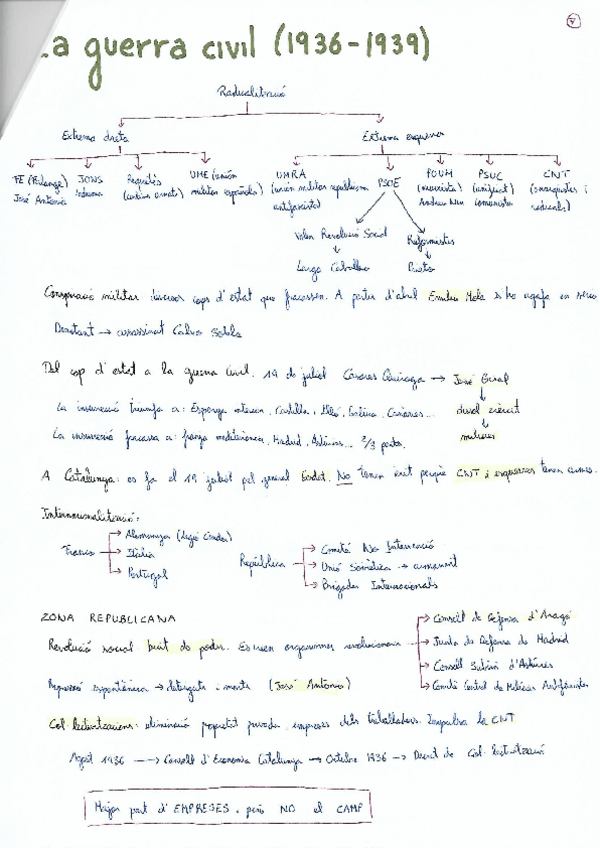 La guerra civil (1936-1939)
Radicalització
Extrema dreta
Extrema esquerra
FE (Falange) José Antonio
JONS
Requetés (carlins armats)
UME (unión militar española)
UMRA (unión militar republicana antifascista)
PSOE
POUM (marxista) Andreu Nin
PSUC (unificat) comunista
CNT (anarquistes i radicals)
Volen Revolució Social
Reformistes
Largo Caballero
Prieto
Conspiració militar diversos cops d'estat que fracassen. A partir d'abril Emilio Mola s'ho agafa en sèrio
Detonant → assassinat Calvo Sotelo
Del cop d'estat a la guerra civil. 19 de juliol Casares Quiroga → José Giral
La insurrecció triomfa a: Espanya interior, Castilla, Lleó, Galícia, Canàries...
disol exèrcit
La insurrecció fracassa a: franja mediterrània, Madrid, Astúries... 2/3 parts.
milícies
A Catalunya: es fa el 19 juliol pel general Goded. No tenen èxit perquè CNT i esquerres tenen armes.
Internacionalització:
Franco
Alemanya (Legió Còndor)
Itàlia
Portugal
República
Comitè No Intervenció
Unió Soviètica → armament
Brigades Internacionals
ZONA REPUBLICANA
Revolució social buit de poder. Es creen organismes revolucionaris
Consell de Defensa d'Aragó
Junta de Defensa de Madrid
Consell Sobirà d'Astúries
Comitè Central de Milícies Antifeixistes
Repressió espontània → detinguts i morts (José Antonio)
Col·lectivitzacions: eliminació propietat privada, empreses dels treballadors. Impulsa la CNT
Agost 1936 → Consell d'Economia Catalunya → Octubre 1936 → Decret de Col·lectivització
Major part d'EMPRESES, però NO el CAMP